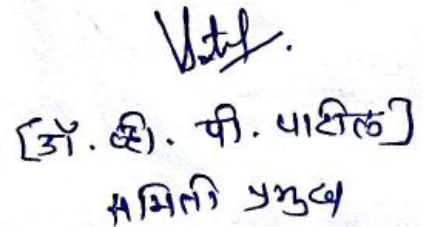 [डॉ. व्ही. पी. पाटील]
समिती प्रमुख